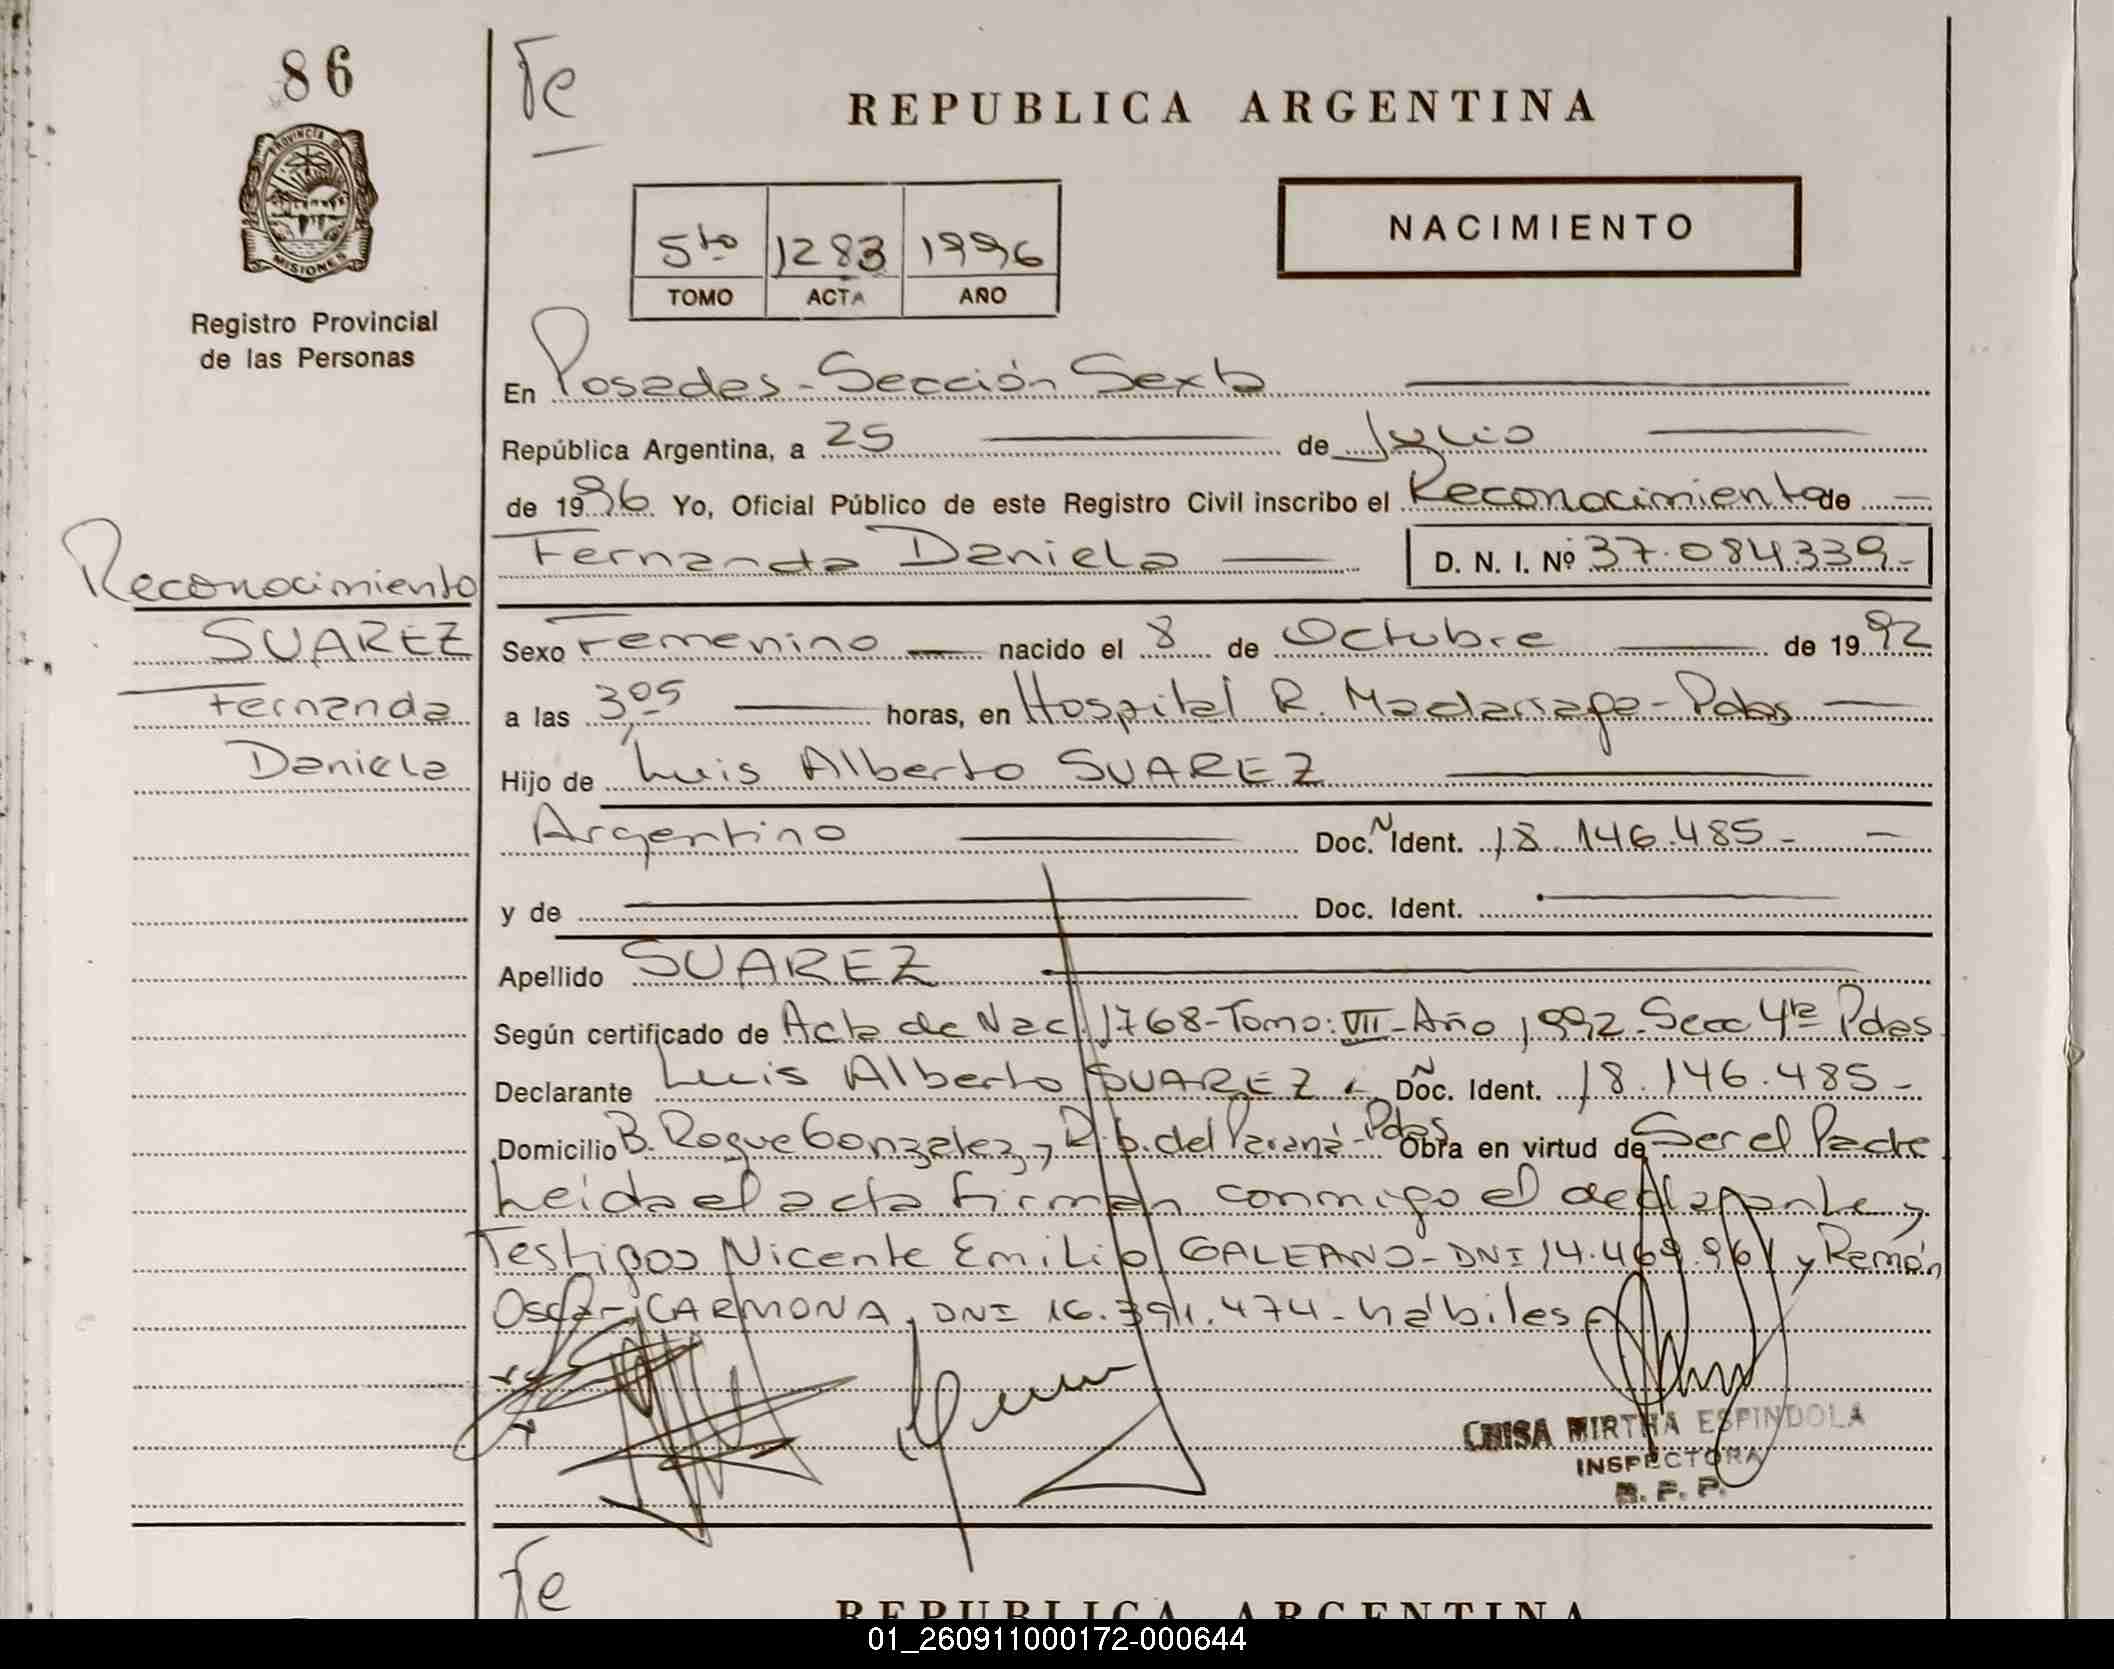 86
Te
REPUBLICA ARGENTINA
PROVINCIA DE
MISIONES
Registro Provincial
de las Personas
5to 1283 1996
TOMO ACTA AÑO
NACIMIENTO
En Posadas - Sección Sexta
República Argentina, a 25 de Julio
de 1996 Yo, Oficial Público de este Registro Civil inscribo el Reconocimiento de
Fernanda Daniela D. N. I. Nº 37.084.339.-
Reconocimiento
SUAREZ
Fernanda
Daniela
Sexo Femenino nacido el 8 de Octubre de 1992
a las 3,05 horas, en Hospital R. Madarriaga - Pdas
Hijo de Luis Alberto SUAREZ
Argentino Doc.N Ident. 18.146.485 -
y de Doc. Ident.
Apellido SUAREZ
Según certificado de Acta de Nac. 1768 - Tomo: VII - Año 1992 - Secc 4ta Pdas
Declarante Luis Alberto SUAREZ Doc.N Ident. 18.146.485 -
Domicilio B. Roque Gonzalez y R. b. del Paraná - Pdas Obra en virtud de Ser el Padre
Leída el acta firman conmigo el declarante y
Testigos Vicente Emilio GALEANO - DNI 14.469.961 y Ramón
Oscar CARMONA, DNI 16.391.474 - hábiles
MIRTHA ESPINDOLA
INSPECTORA
R. P. P.
Te
REPUBLICA ARGENTINA
01_260911000172-000644